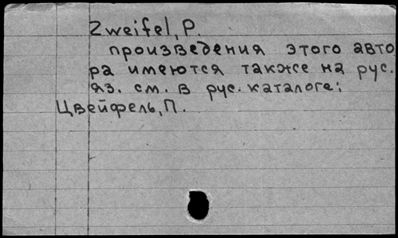 Zweifel, P.
произведения этого авто
ра имеются также на рус.
яз. см. в рус. каталоге:
Цвейфель, П.